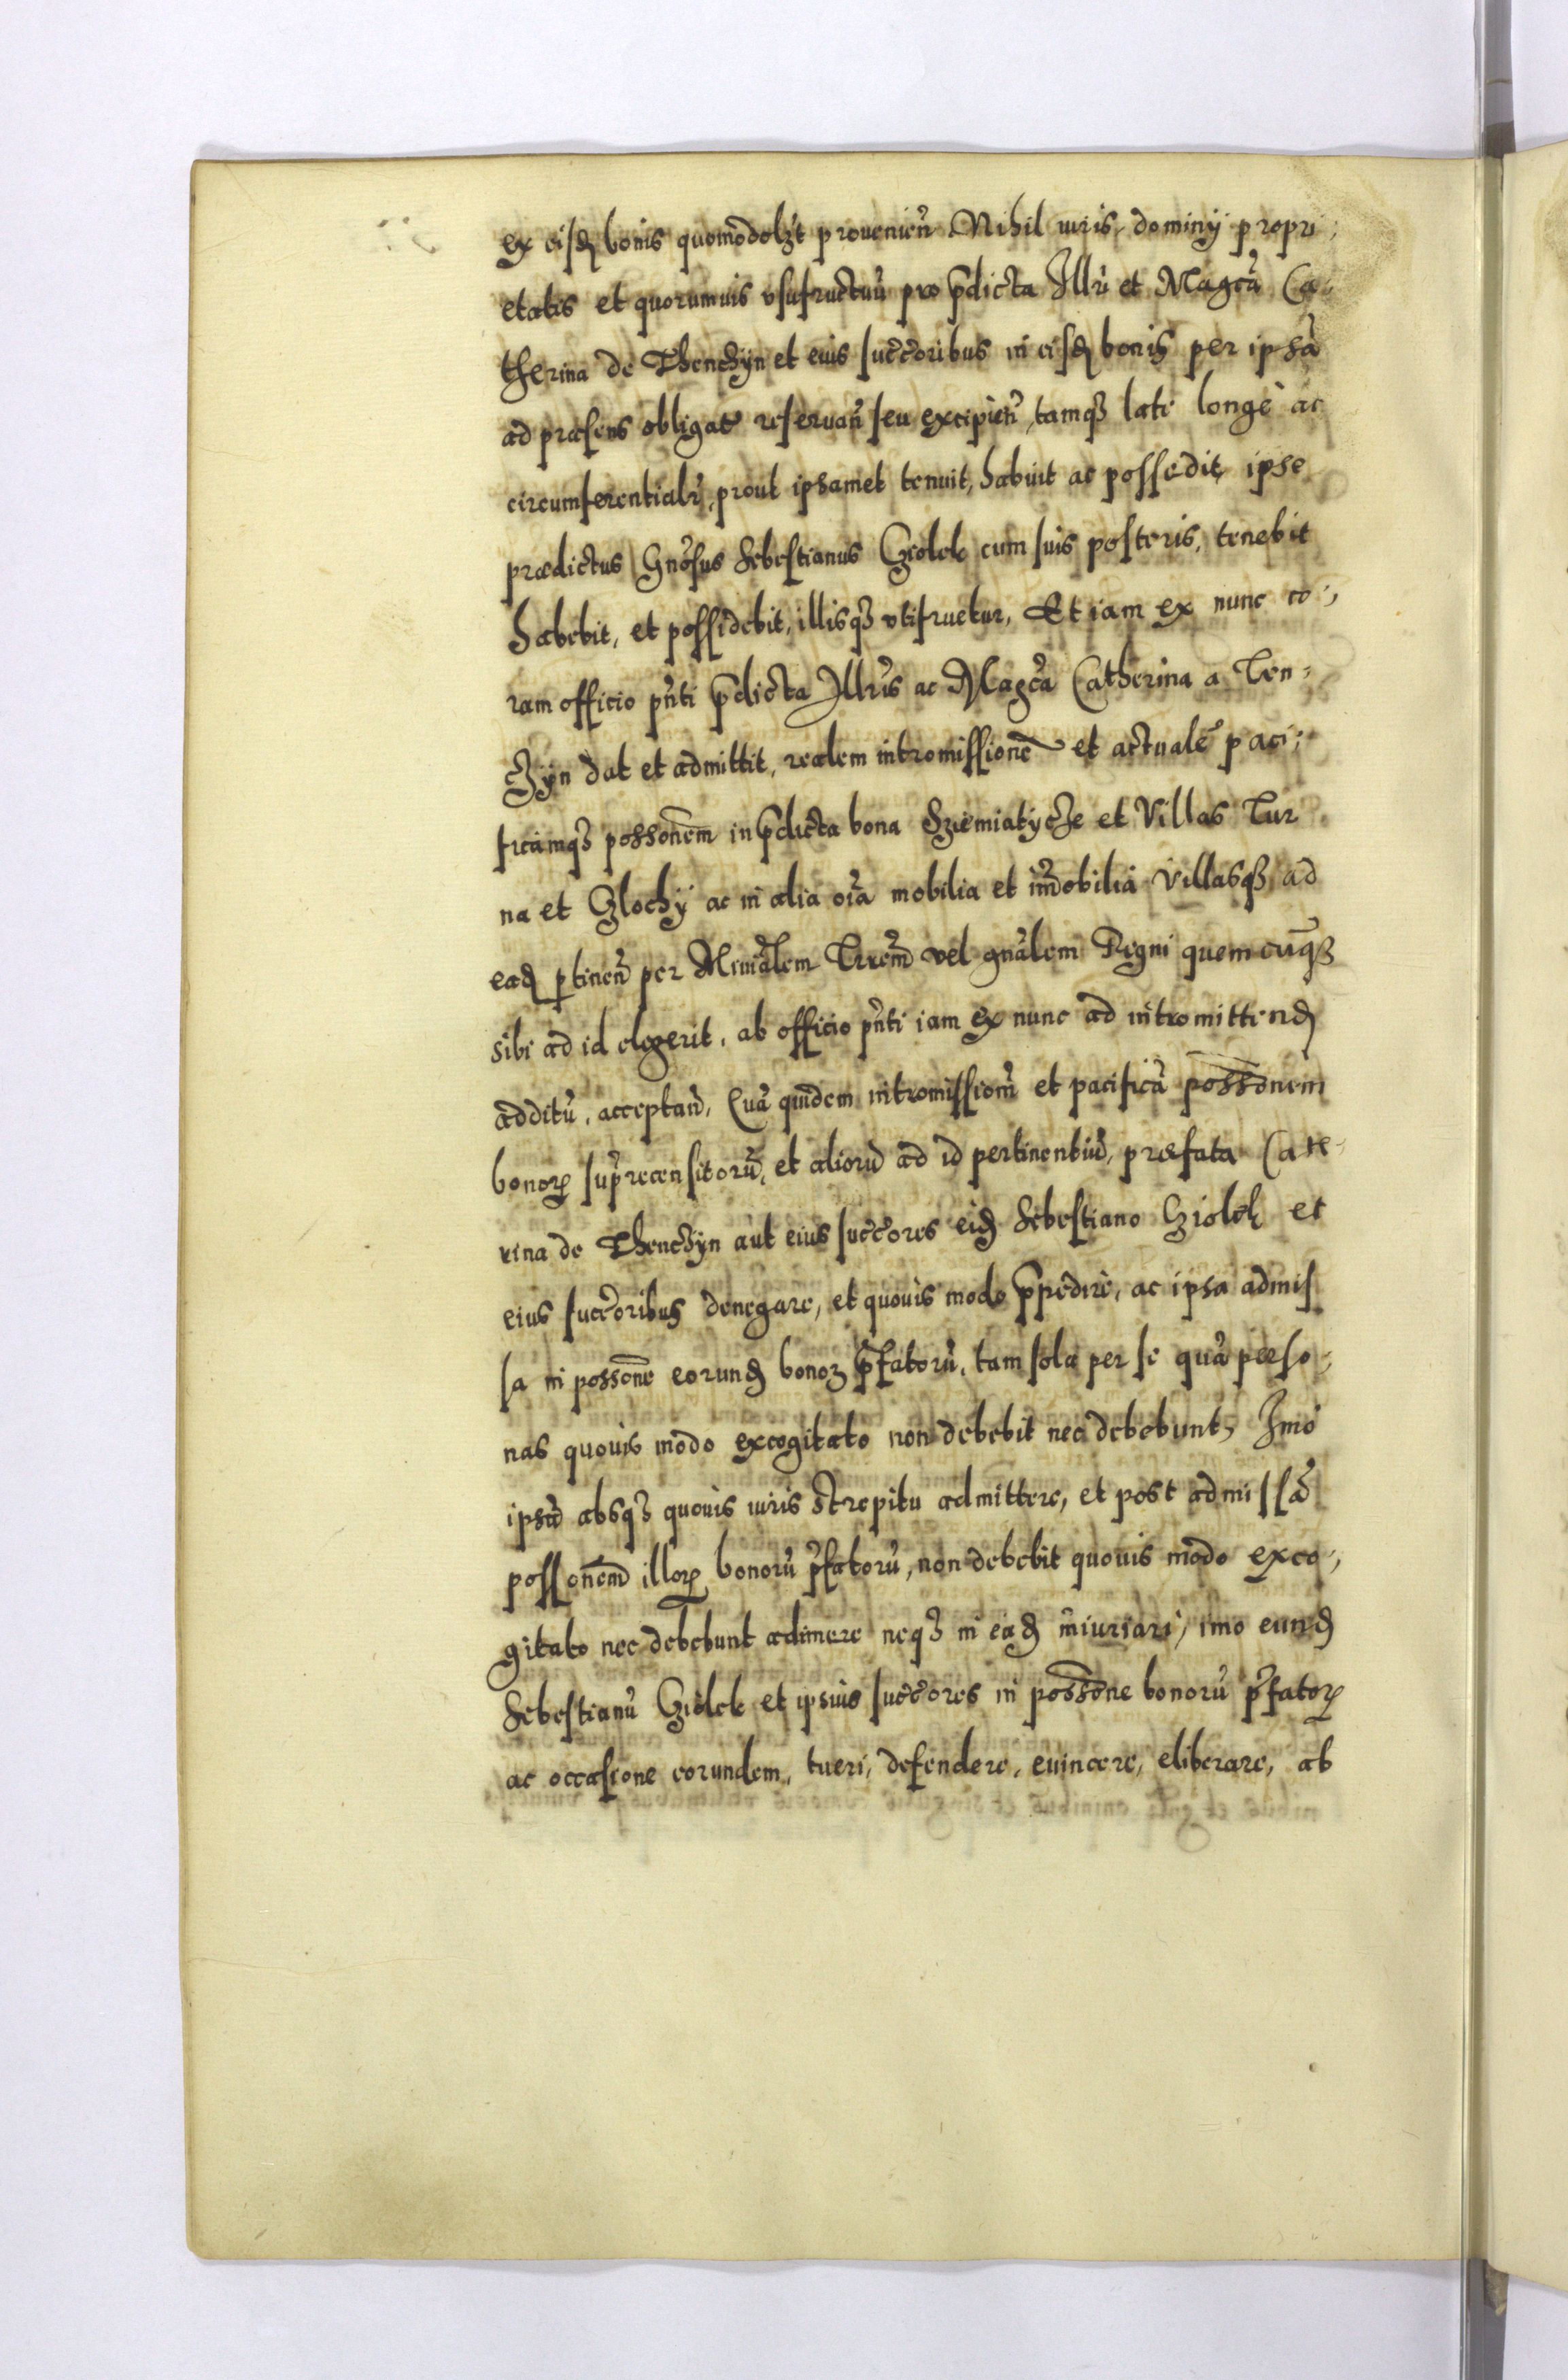 ex eisd bonis quomodolz't prouenien̄ Nihil iuris, dominÿ propri:
etatis et quorumuis vsufructuū pro p̄dicta Illrī et Magcā Ca-
therina de ThenczŸn et eius succ̄oribus in eisd bonis per ipsā
ad præsens obligat̄ reseruan̄ seu excipien̄, tamqȝ late longè ac
circumferentialr̄, prout ipsamet tenuit, habuit ac possedit, ipse
prædictus Gn̄osus Sebestianus Gziolek cum suis posteris, tenebit
habebit, et possidebit, illisqȝ vtifruetur, Et iam ex nunc co:,
ram officio pn̄ti p̄dicta Illrīs ac Magcā Catherina a Ten:
czÿn dat et admittit, realem intromissionē et actualē paci:
ficāmqȝ possonēm in p̄dicta bona Sziemiatÿcze et Villas Tur
na et Gzlochÿ ac in alia oīa mobilia et im̄obilia Villasqȝ ad
ead pertinen̄ per Miniālem Trrēm vel gnālem Regni quemcūqȝ
sibi ad id elegerit, ab officio pn̄ti iam ex nunc ad intromittend
additū, acceptan̄, Quā quidem intromissionē et pacificā possonēm
bonoꝝ supr̄recensitorū, et aliorū ad id pertinentiū, præfata Cate-
rina de Thenczÿn aut eius succ̄ores eid Sebestiano Gziolek et
eius succ̄oribus denegare, et quouis modo p̄pedire, ac ipsa admis
sa in possonē eorund bonoꝝ p̄fatorū, tam sola per se quā perso:,
nas quouis modo excogitato non debebit nec debebunt, Imo
ipsū absqȝ quouis iuris strepitu admittere, et post admissā
possonēm illoꝝ bonorū pr̄fatorū, non debebit quouis modo exco:,
gitato nec debebunt adimere neqȝ in ead iniuriari, imo eund
Sebestianū Gziolek et ipsius succ̄ores in possonē bonorū pr̄fatoꝝ
ac occasione eorundem, tueri, defendere, euincere, eliberare, ab